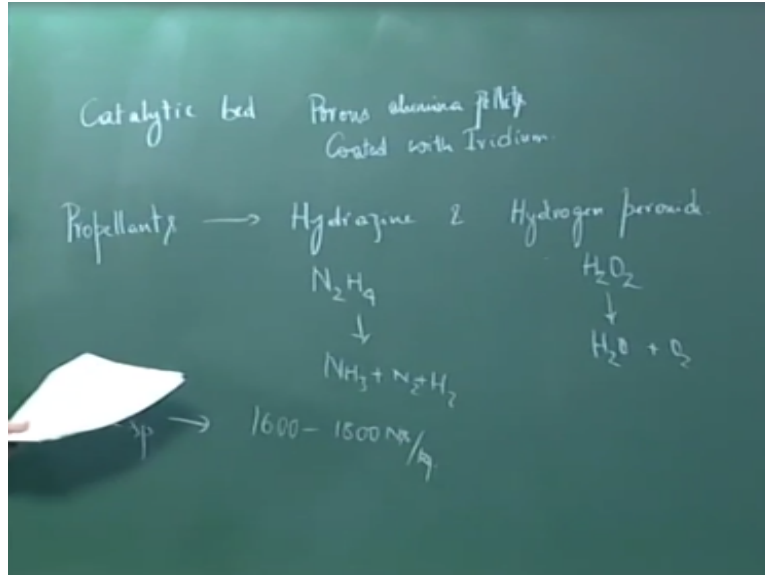 Catalytic bed Porous alumina pellets
Coated with Iridium.
Propellants → Hydrazine & Hydrogen peroxide.
N₂H₄ H₂O₂
↓ ↓
NH₃ + N₂ + H₂ H₂O + O₂
sp → 1600 - 1800 Ns/kg.